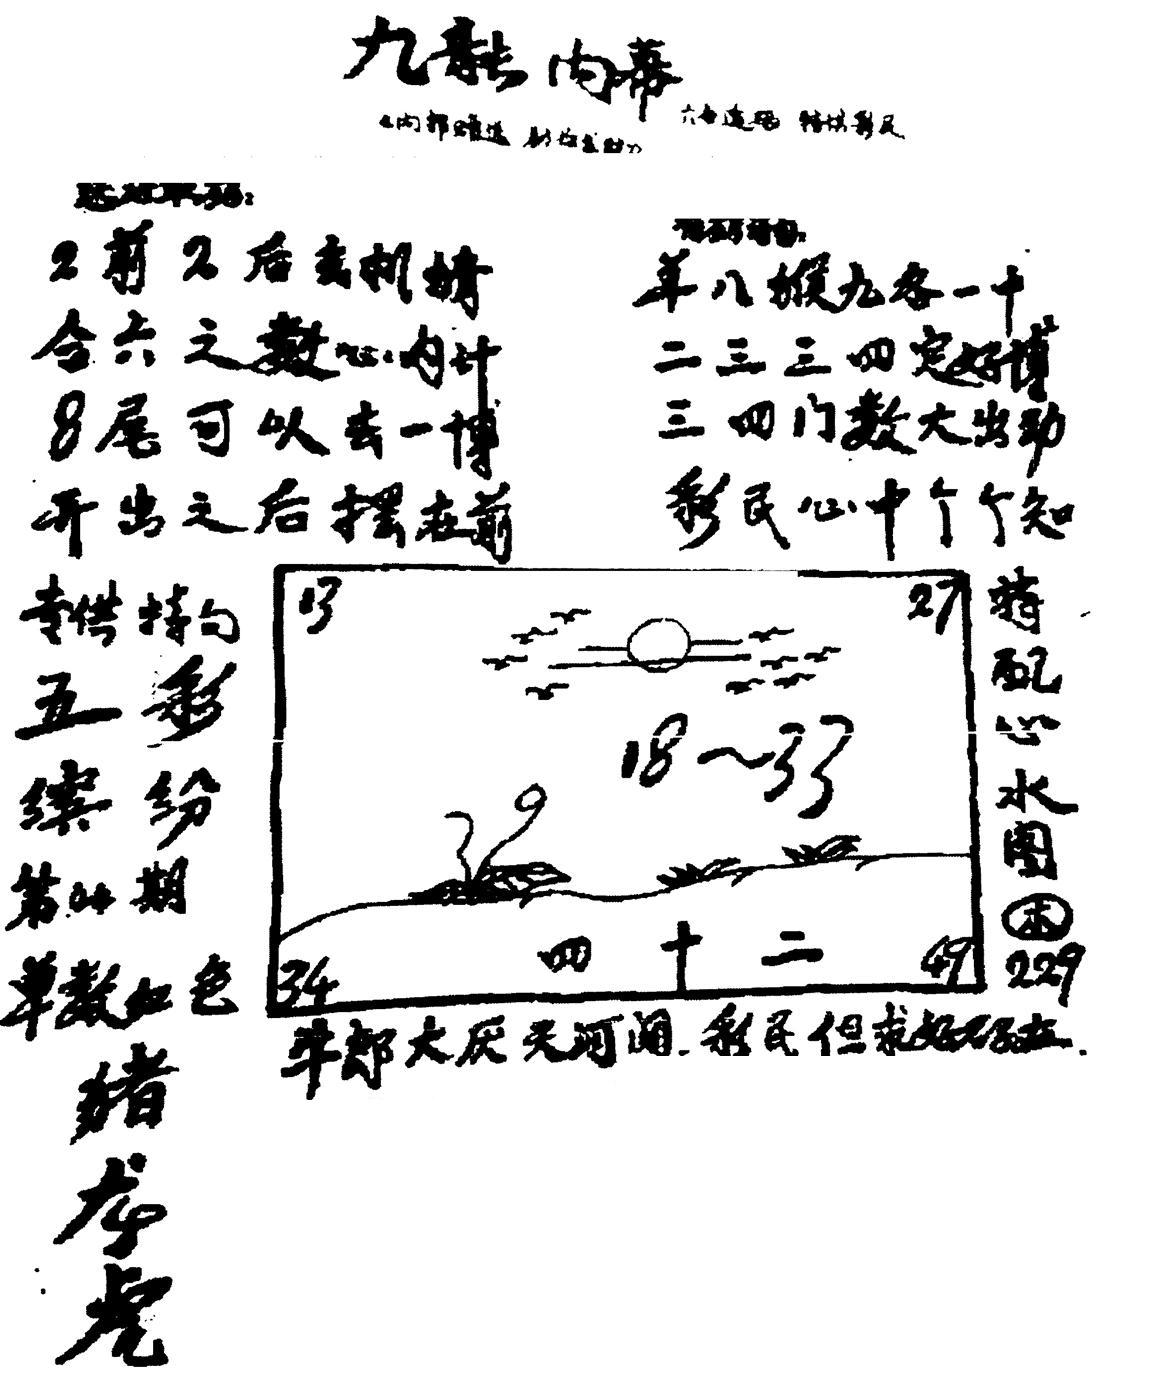 九龍内幕
六合透码 特供彩民
2前2后去机情
合六之数心内计
8尾可以去一博
开出之后摆在前
羊八猴九各一十
二三三四定好博
三四门数大出动
彩民心中个个知
专供特句
五彩
缤纷
第04期
单数红色
猪
龙
虎
13
27
18～33
四十二
34
49
特
配
心
水
图
本
229
牛郎大厌天河闹.彩民但求好